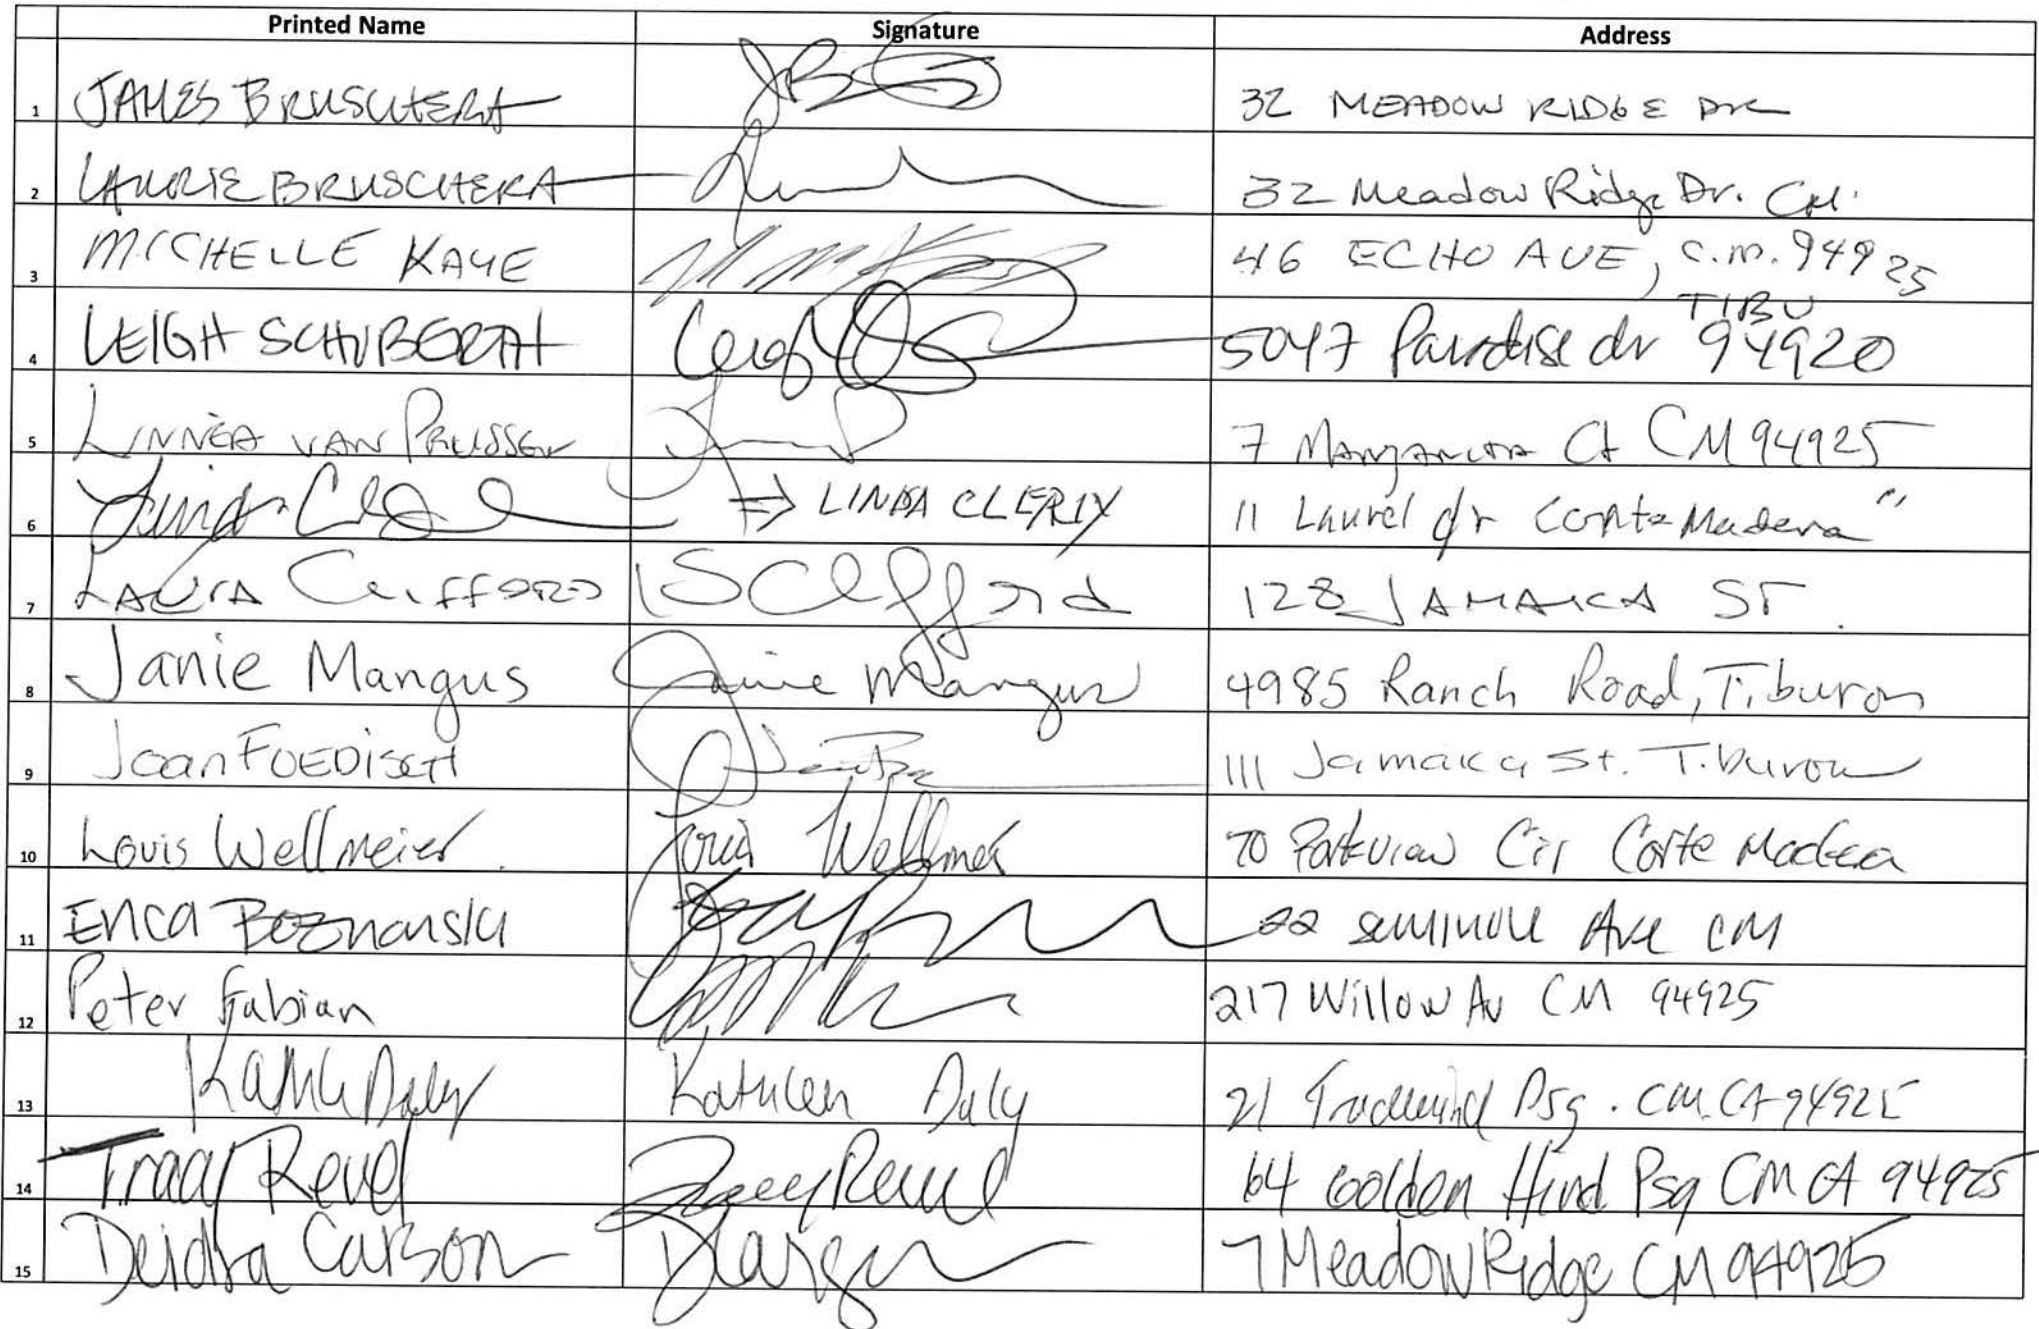 Printed Name Signature Address
1 JAMES BRUSCHERA 32 MEADOW RIDGE DR
2 LAURIE BRUSCHERA 32 Meadow Ridge Dr. CM.
3 MICHELLE KAYE 46 ECHO AVE, C.M. 94925
TIBU
4 LEIGH SCHUBERTH Leigh 5047 Paradise dr 94920
5 LINNEA VAN PRUSSEN 7 MANZANITA Ct CM 94925
6 Linda => LINDA CLERIX 11 Laurel dr Corte Madera "
7 LAURA CLIFFORD Clifford 128 JAMAICA ST.
8 Janie Mangus Janie Mangus 4985 Ranch Road, Tiburon
9 Joan FOEDISCH 111 Jamaica St. Tiburon
10 Louis Wellmeier Louis 70 Parkview Cir Corte Madera
11 Erica Poznanski 22 Seminole Ave CM
12 Peter Fabian 217 Willow Av CM 94925
13 Daly Kathleen Daly 21 Tradewind Psg. CM. CA 94925
14 Tracy Revel Tracy Revel 64 Golden Hind Psg CM CA 94925
15 Deidra Carson 7 Meadow Ridge CM 94925